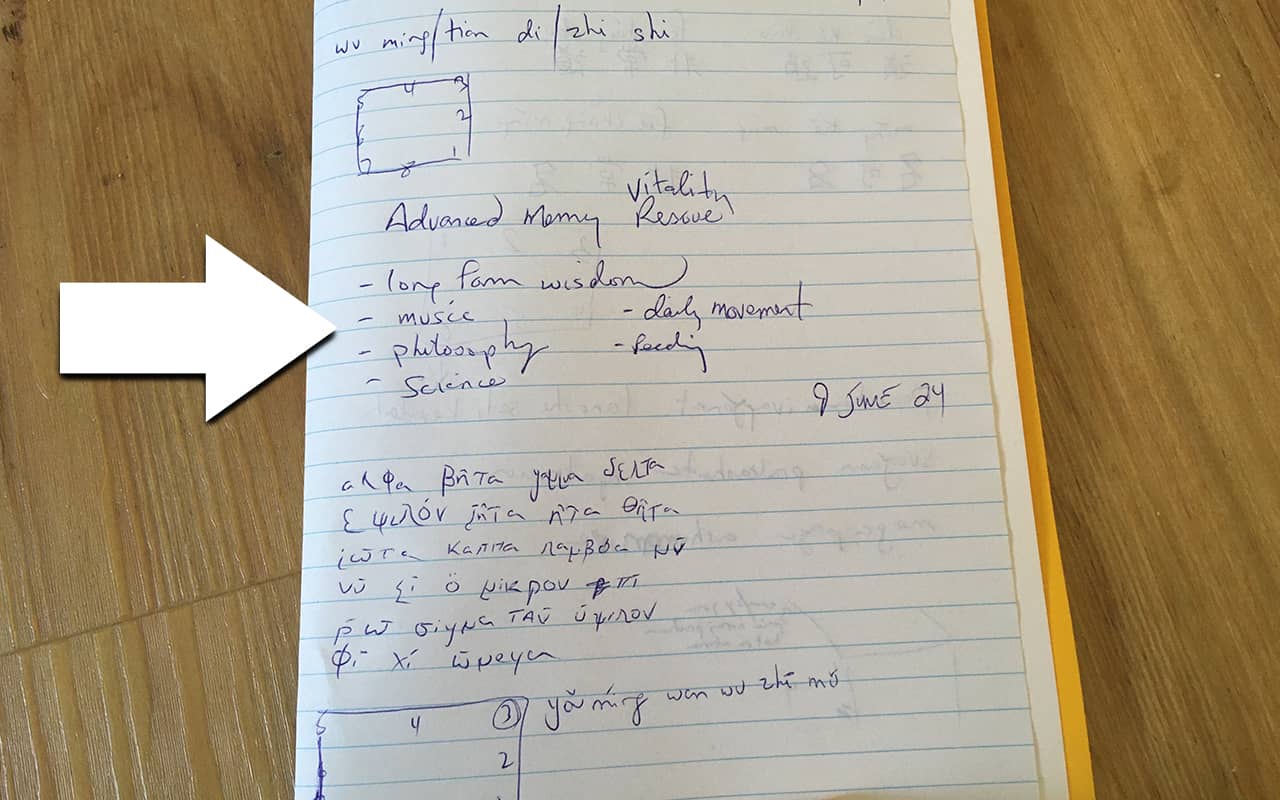 wu ming/tian di/zhi shi
5 4 3
6 2
7 8 1
Vitality
Advanced Memory Rescue
- long form wisdom
- music - daily movement
- philosophy - feeding
- Science
9 JUNE 24
αλφα βῆτα γαμμα δελτα
ἐ ψιλόν ζῆτα ἠτα θῆτα
ἰῶτα καππα λαμβδα μῦ
νῦ ξῖ ὄ μικρον πῖ
ῥῶ σίγμα ταῦ ὑψιλον
φῖ χῖ ὠμεγα
5 4 3 yǒu míng wan wu zhī mǔ
2